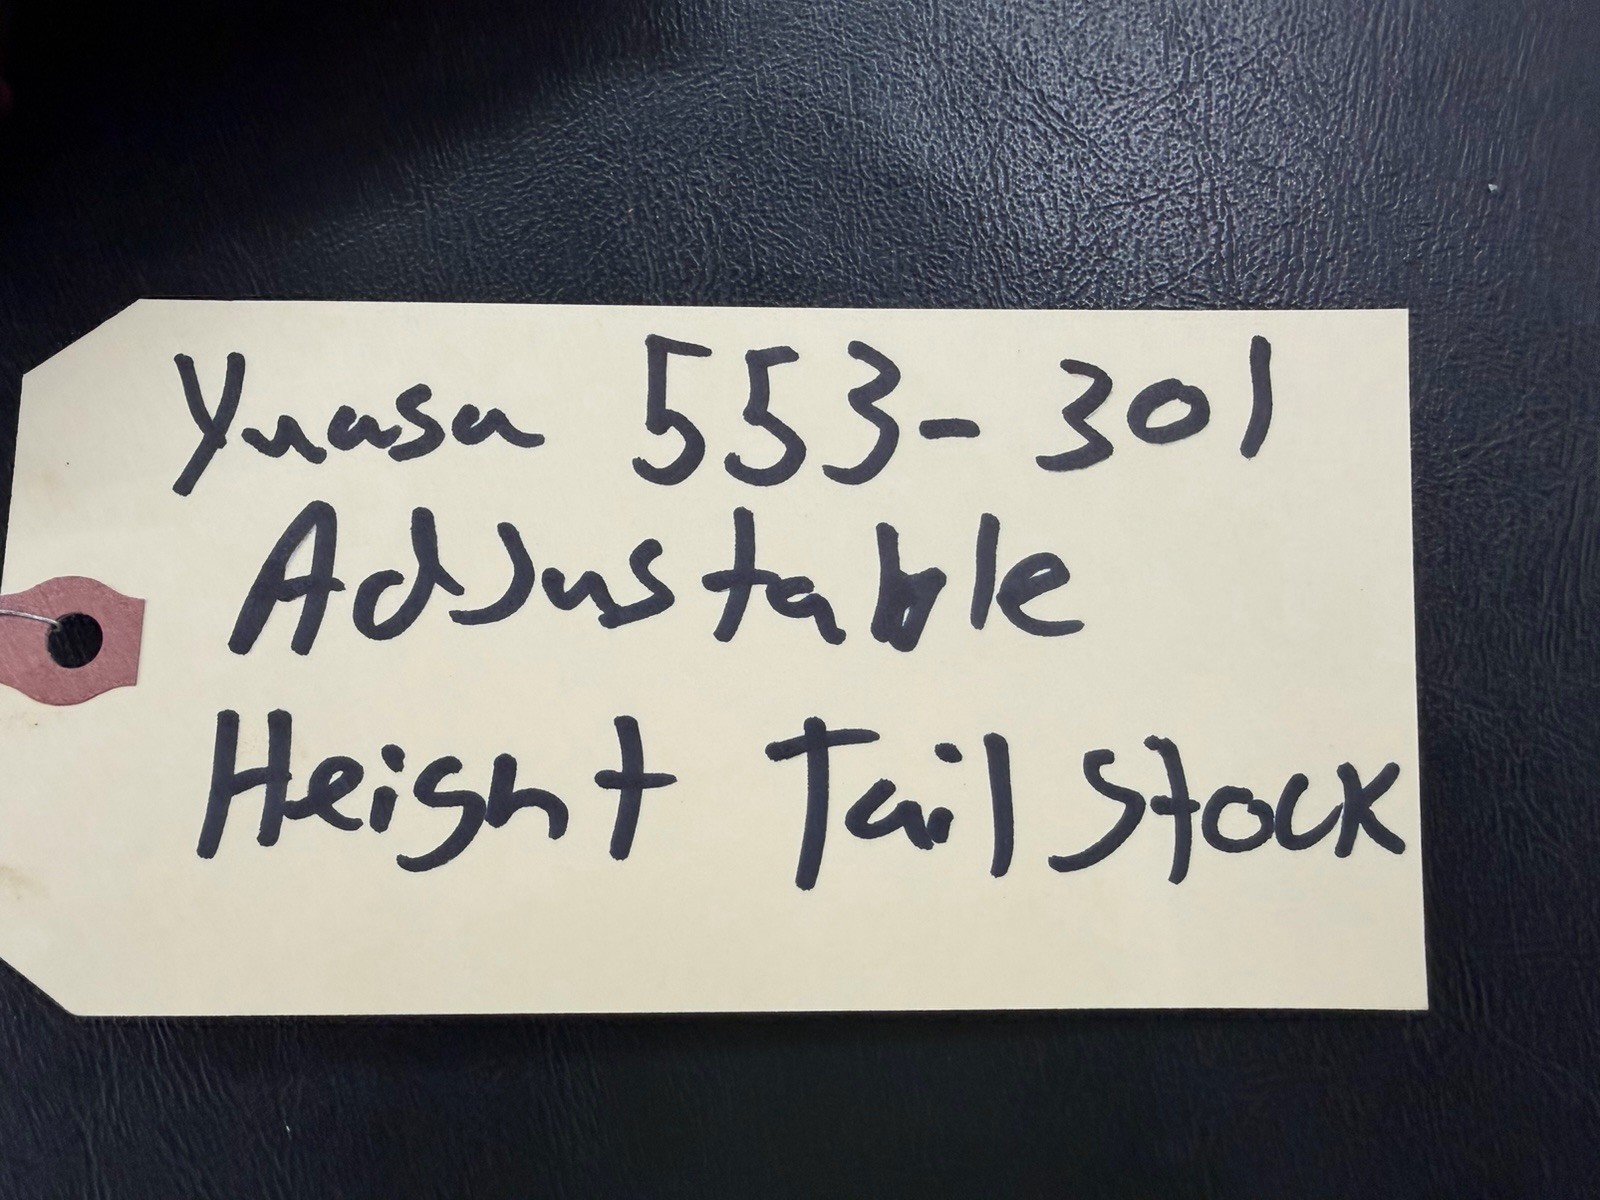 Yuasa 553-301
Adjustable
Height Tail Stock